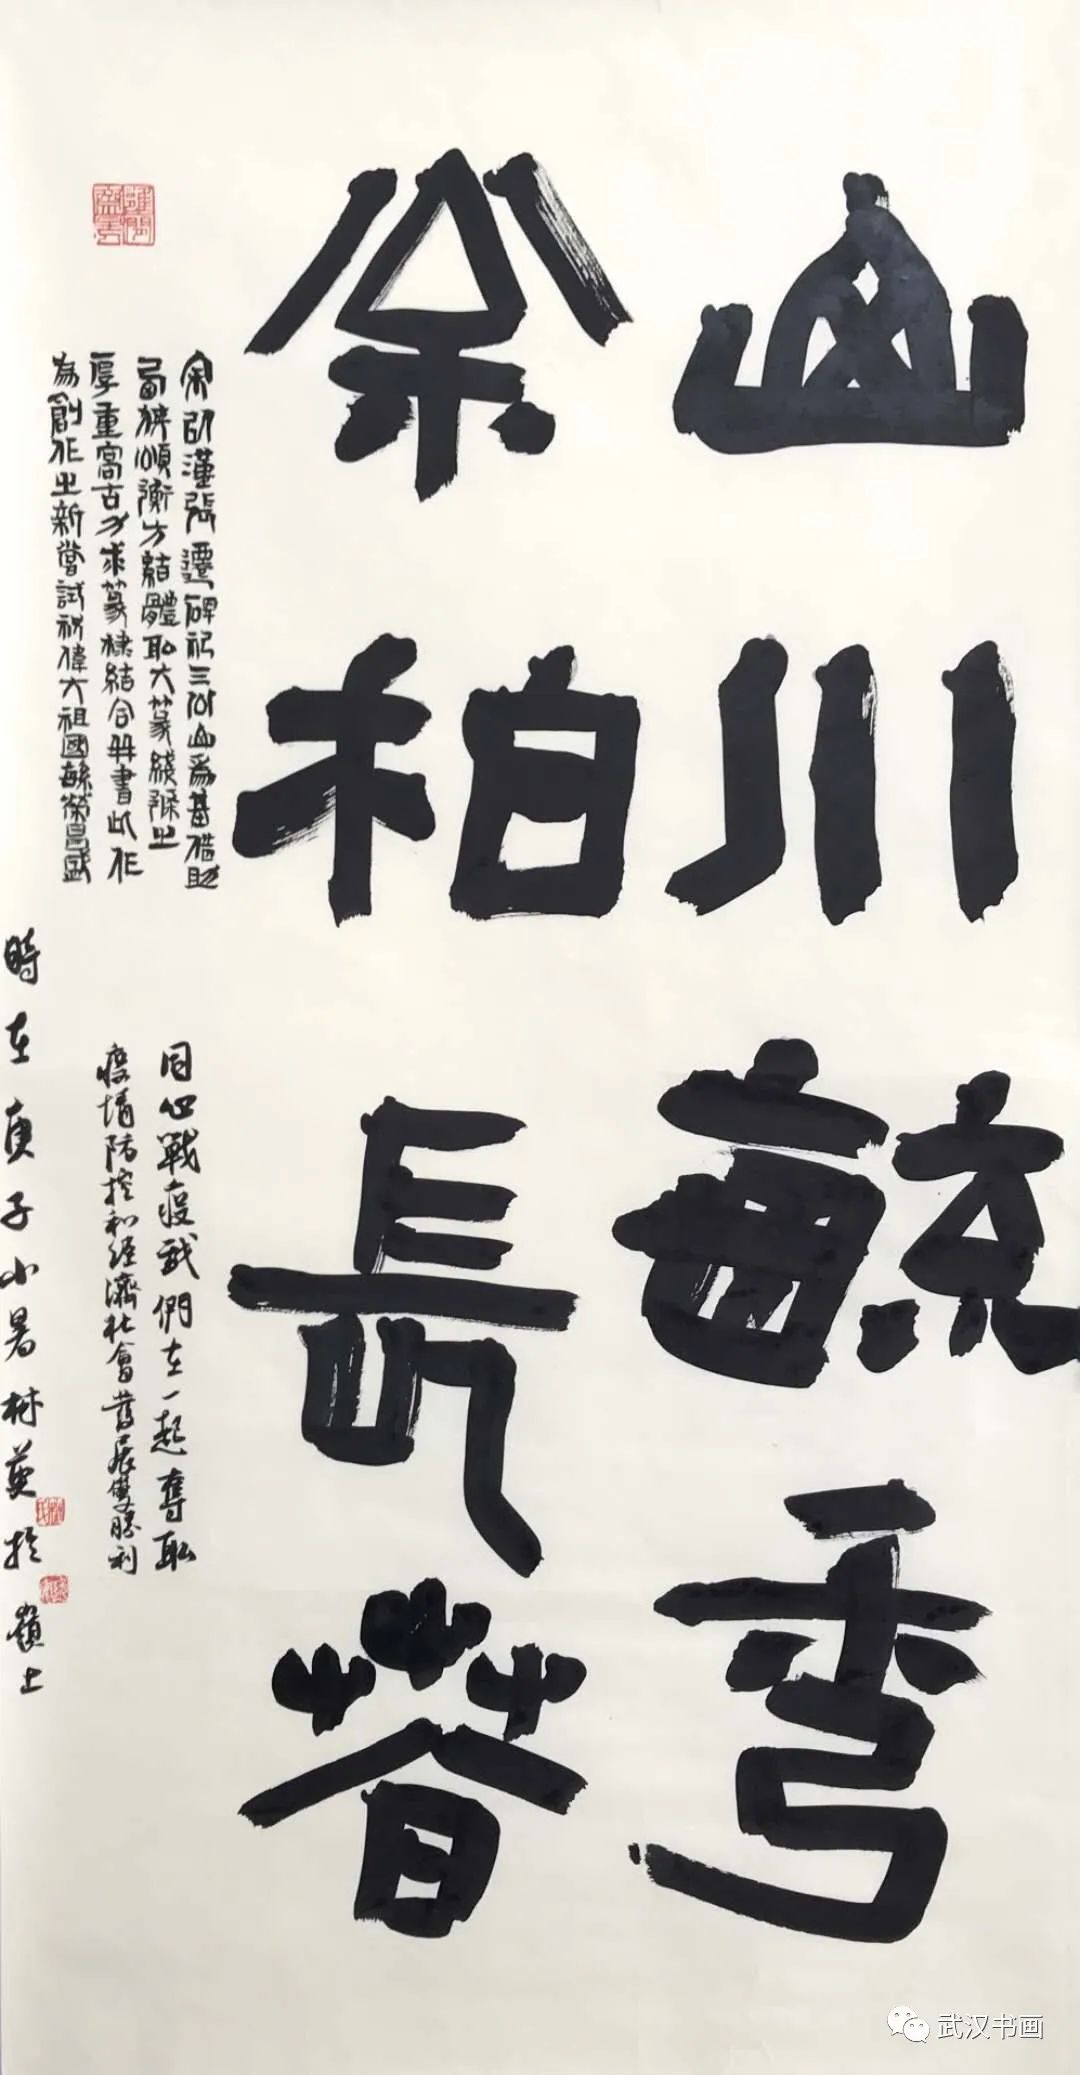 山川毓秀
松柏長春
余師漢張遷碑祀三公山為基借助
西狹頌衡方結體取大篆綫條之
厚重高古力求篆隸結合書此作
為創作之新嘗試祝偉大祖國毓榮昌盛
同心戰疫我們在一起奪取
疫情防控和經濟社會發展雙勝利
時在庚子小暑樹英於嶺上
武汉书画